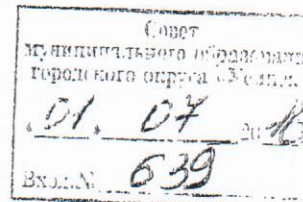 Совет
муниципального образования
городского округа
"01" 07 20
Вход.№ 639